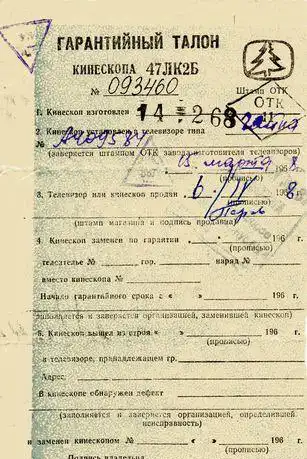 ГАРАНТИЙНЫЙ ТАЛОН
КИНЕСКОПА 47ЛК2Б
№ 093460
Штамп ОТК
ОТК
1. Кинескоп изготовлен 14 - 2 68
2. Кинескоп установлен в телевизоре типа
№
(заверяется штампом ОТК завода-изготовителя телевизоров)
15 марта 196 8
(прописью)
3. Телевизор или кинескоп продан 6/IV 8
(прописью)
(штамп магазина и подпись продавца)
4. Кинескоп заменен по гарантии 196 г.
(прописью)
телеателье № гор. наряд №
вместо кинескопа №
Начало гарантийного срока с « » 196 г.
(заполняется и заверяется организацией, заменившей кинескоп)
5. Кинескоп вышел из строя « » 196 г.
(прописью)
в телевизоре, принадлежащем гр.
Адрес
В кинескопе обнаружен дефект
(заполняется и заверяется организацией, определившей
неисправность)
и заменен кинескопом № « » 196 г.
Подпись владельца